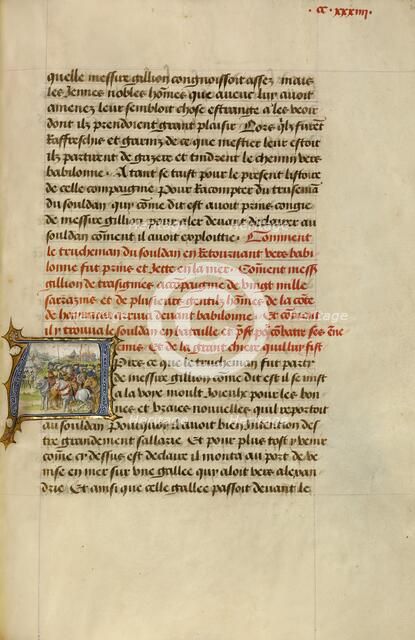 .cc.xxxiiij.
quelle messire gillion congnoissoit assez mais
les Jennes nobles hommes que auent luy auoit
amenez leur sembloit chose estrange a les veoir
dont ilz prendoient grant plaisir Lors quilz furent
Raffreschis et garniz de ce que mestier leur estoit
ilz partirent de gazere et tindrent le chemin vers
babilonne. A tant se taist pour le present listoire
de celle compaignie Pour Racompter du truseman
du souldan quy comme dit est auoit prins congie
de messire gillion pour aler deuant declairer au
souldan comment il auoit exploittie. Comment
le trucheman du souldan en Retournant vers babi
lonne fut prins et Jette en la mer. Coment messire
gillion de trasignies acompaignie de vingt mille
sarrazins et de plusieurs gentilz hommes de la
arriua deuant babilonne Et coment
il y trouua le souldan en bataille et prest pour combatre ses enne
mis Et de la grant chiere quil luy fist
Dire ce que le trucheman fut party
de messire gillion comme dit est il se mist
a la voye moult Joieux pour les bon
nes et braies nouuelles quil reportoit
au souldan Pourquoy il auoit bien Intention des
tre grandement sallarie Et pour plus tost y venir
comme cy dessus est declaire il monta au port de ve
nise en mer sur vne gallee quy aloit vers alexan
drie Et ainsi que celle gallee passoit deuant le